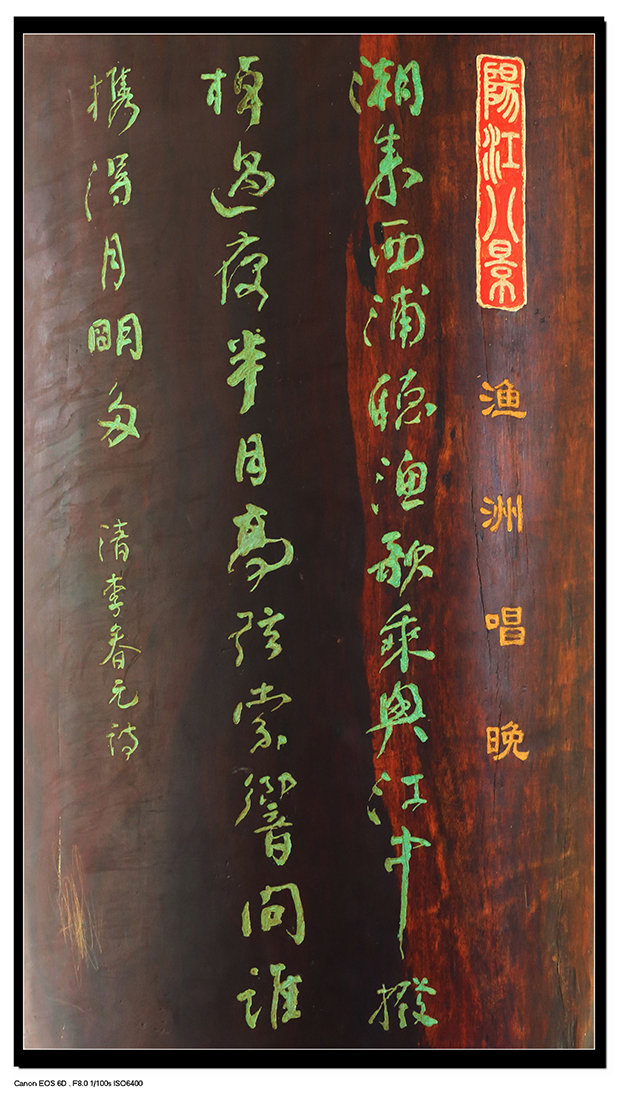 陽江八景
渔洲唱晚
潮来西浦聴渔歌乘興江中撥
棹過夜半月高弦索響問誰
携得月朙多
清李春元詩
Canon EOS 6D . F8.0 1/100s ISO6400